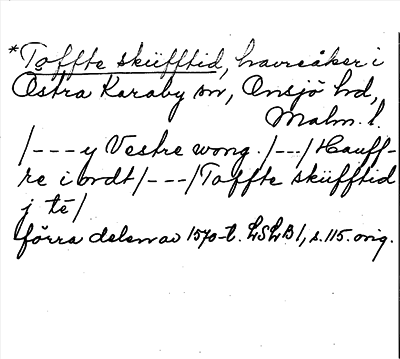 *Toffte skufftid, havreåker i
Östra Karaby sn, Onsjö hd,
Malm. l.
/---y Vestre wong./--/Hauff-
re i ordt/---/Toffte skufftid
j tē/
förra delen av 1570-t. LSLB 1, s. 115. orig.